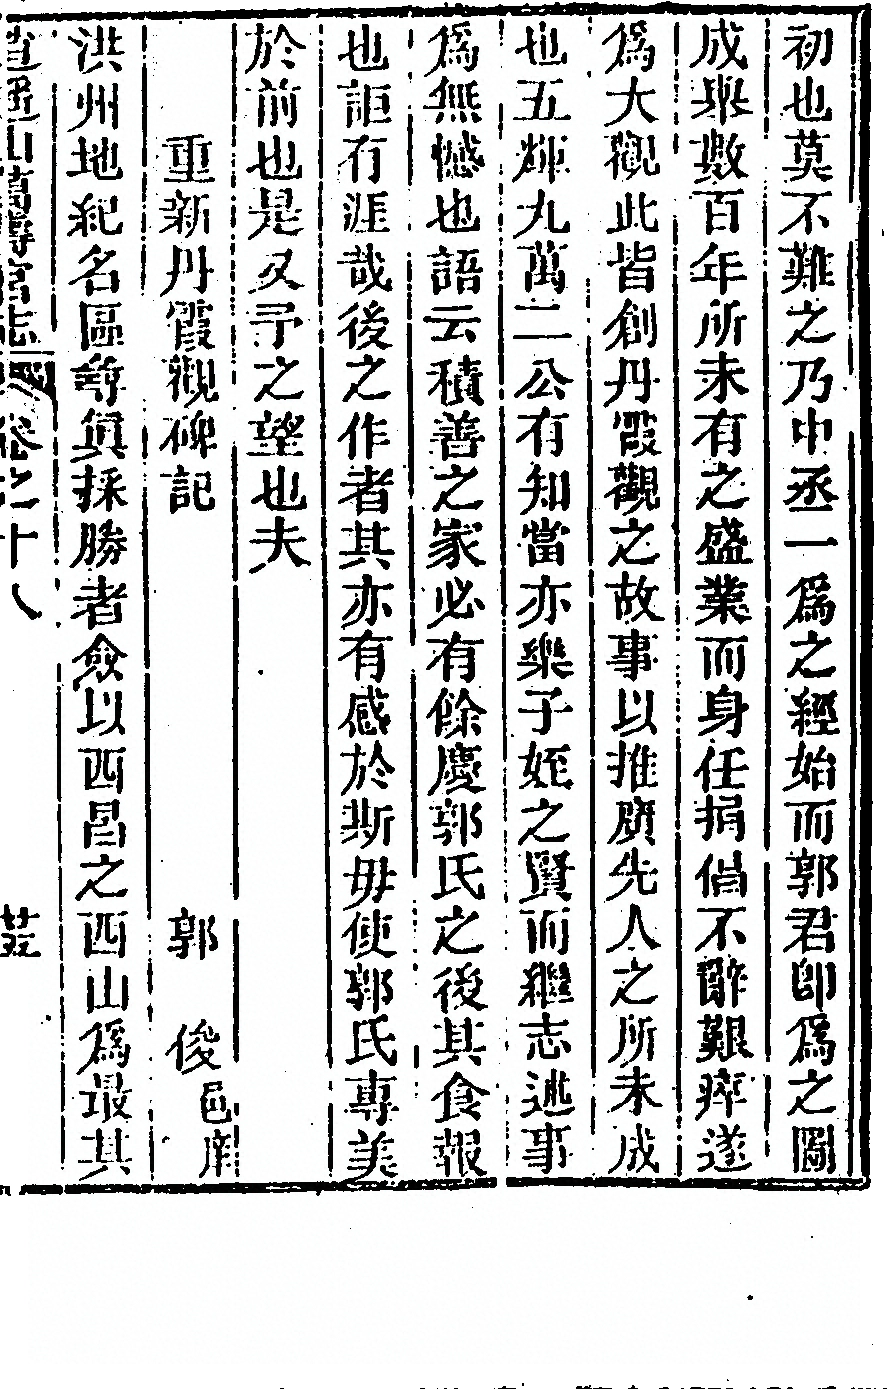 初也莫不難之乃中丞一爲之經始而郭君卽爲之圖
成舉數百年所未有之盛業而身任捐倡不辭艱瘁遂
爲大觀此皆創丹霞觀之故事以推廣先人之所未成
也五煇九萬二公有知當亦樂子姪之賢而繼志述事
爲無憾也語云積善之家必有餘慶郭氏之後其食報
也詎有涯哉後之作者其亦有感於斯毋使郭氏專美
於前也是又予之望也夫
重新丹霞觀碑記 郭 俊邑庠
洪州地紀名區尋真採勝者僉以西昌之西山爲最其
逍遙山萬壽宮志 卷之十八